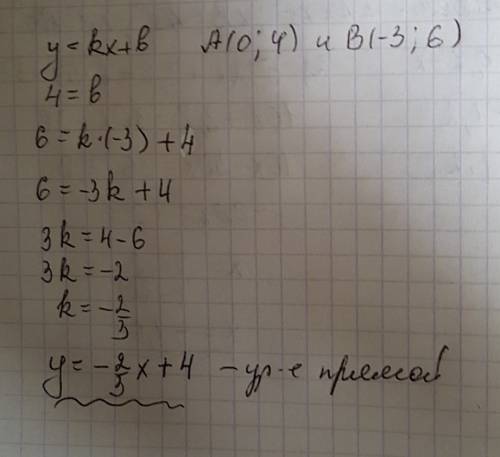 y = kx + b A(0; 4) и B(-3; 6)
4 = b
6 = k·(-3) + 4
6 = -3k + 4
3k = 4 - 6
3k = -2
k = -2/3
y = -2/3 x + 4 - ур-е прямой